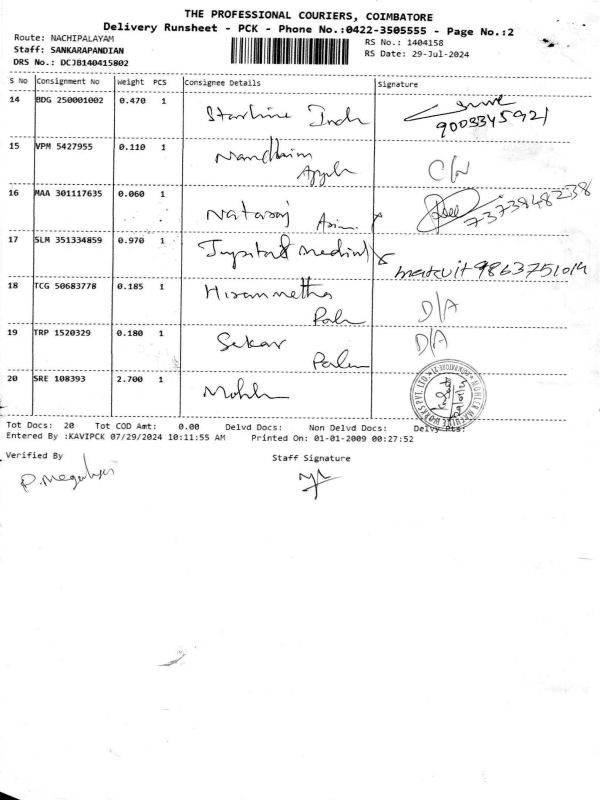 THE PROFESSIONAL COURIERS, COIMBATORE
Delivery Runsheet - PCK - Phone No.:0422-3505555 - Page No.:2
Route: NACHIPALAYAM
RS No.: 1404158
Staff: SANKARAPANDIAN
RS Date: 29-Jul-2024
DRS No.: DCJB140415802
S No Consignment No Weight PCS Consignee Details Signature
14 BDG 250001002 0.470 1 Starline
9003345921
15 VPM 5427955 0.110 1
16 MAA 301117635 0.060 1 Nataraj
7373948238
17 SLM 351334859 0.970 1
9863751014
18 TCG 50683778 0.185 1 D/A
19 TRP 1520329 0.180 1 Sekar D/A
20 SRE 108393 2.700 1
MOHLER MACHINE WORKS PVT. LTD.
Tot Docs: 20 Tot COD Amt: 0.00 Delvd Docs: Non Delvd Docs: Delvy Pts:
Entered By :KAVIPCK 07/29/2024 10:11:55 AM Printed On: 01-01-2009 00:27:52
Verified By Staff Signature